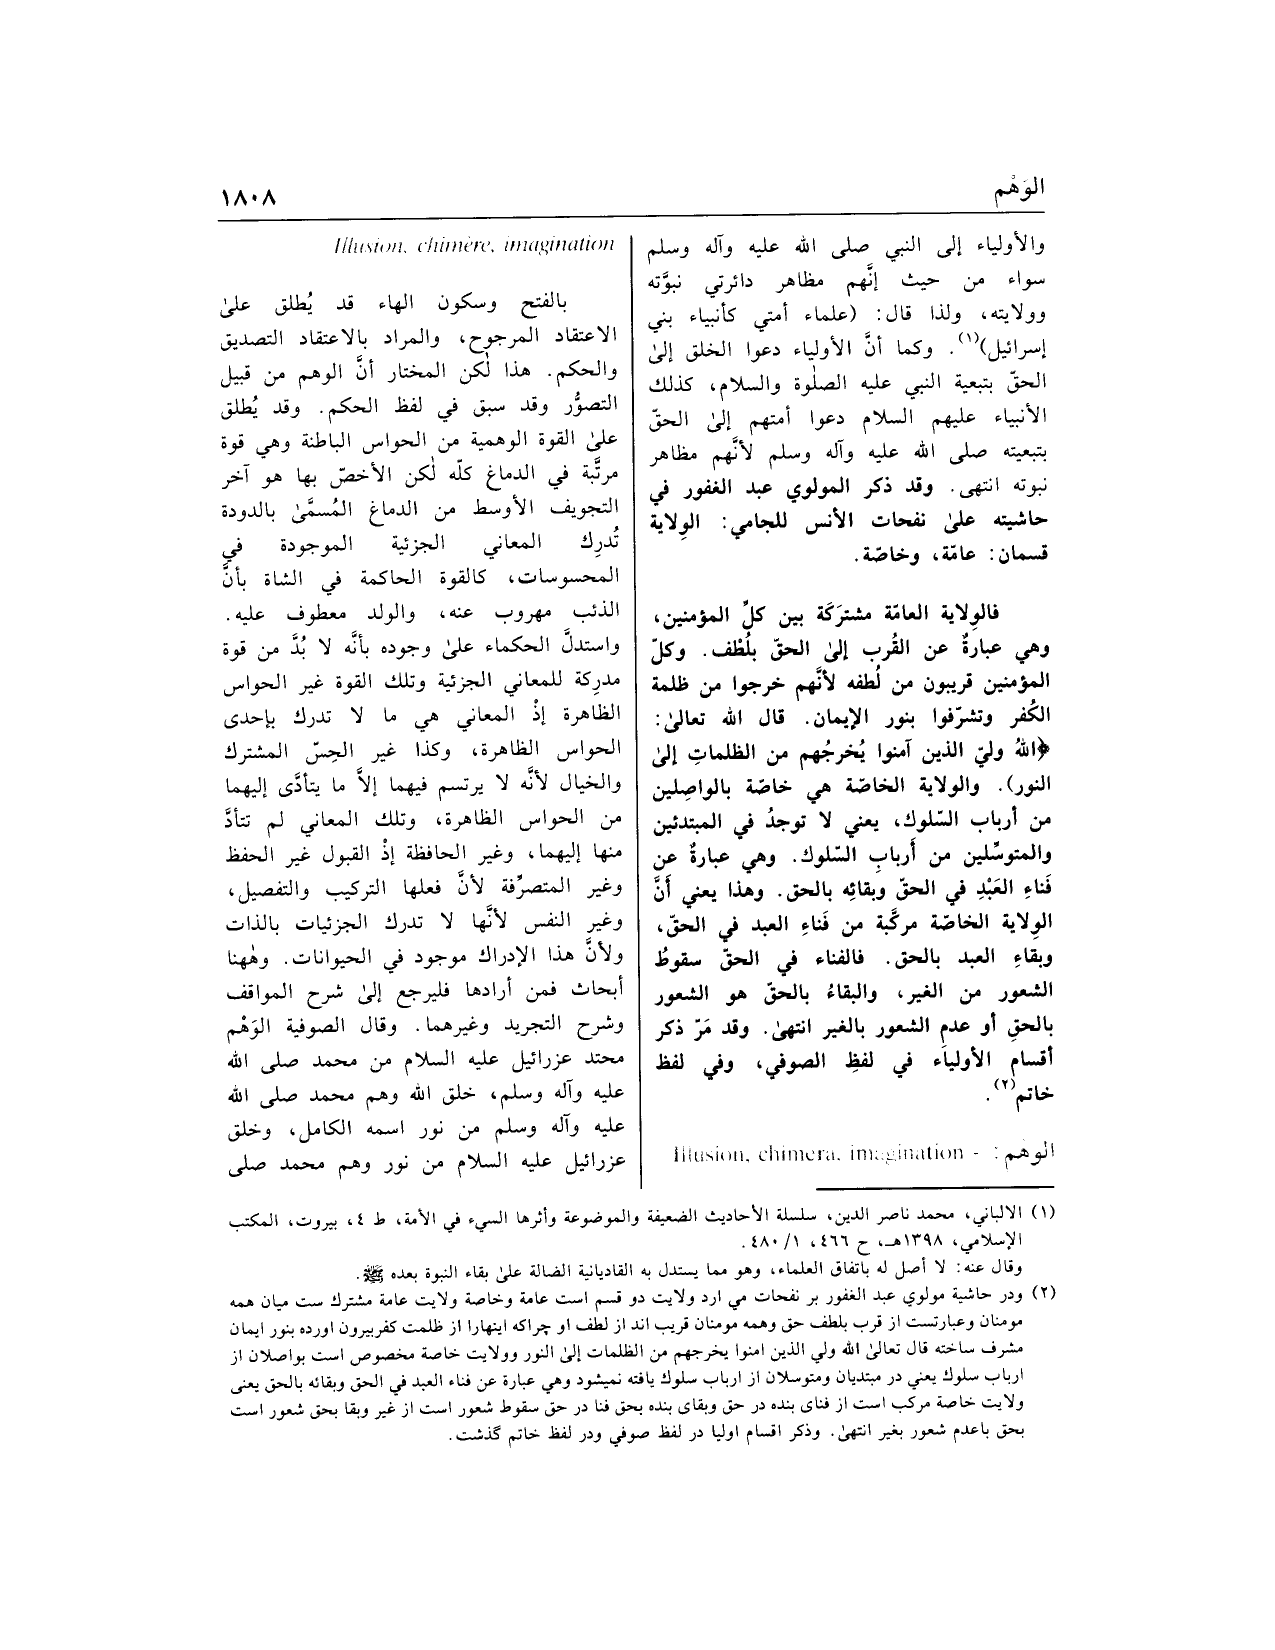 الوَهْم
١٨٠٨
والأولياء إلى النبي صلى الله عليه وآله وسلم
سواء من حيث إنَّهم مظاهر دائرتي نبوَّته
وولايته، ولذا قال: (علماء أمتي كأنبياء بني
إسرائيل)(١). وكما أنَّ الأولياء دعوا الخلق إلىٰ
الحقّ بتبعية النبي عليه الصلٰوة والسلام، كذلك
الأنبياء عليهم السلام دعوا أمتهم إلىٰ الحقّ
بتبعيته صلى الله عليه وآله وسلم لأنَّهم مظاهر
نبوته انتهى. وقد ذكر المولوي عبد الغفور في
حاشيته علىٰ نفحات الأنس للجامي: الوِلاية
قسمان: عامّة، وخاصّة.
فالوِلاية العامّة مشترَكَة بين كلِّ المؤمنين،
وهي عبارةٌ عن القُرب إلىٰ الحقّ بلُطْف. وكلّ
المؤمنين قريبون من لُطفه لأنَّهم خرجوا من ظلمة
الكُفر وتشرّفوا بنور الإيمان. قال الله تعالىٰ:
﴿اللهُ وليّ الذين آمنوا يُخرجُهم من الظلماتِ إلىٰ
النور). والولاية الخاصّة هي خاصّة بالواصِلين
من أرباب السّلوك، يعني لا توجدُ في المبتدئين
والمتوسِّلين من أَربابِ السّلوك. وهي عبارةٌ عن
فَناءِ العَبْدِ في الحقّ وبقائِه بالحق. وهذا يعني أنَّ
الوِلاية الخاصّة مركَّبة من فَناءِ العبد في الحقّ،
وبقاءِ العبد بالحق. فالفناء في الحقّ سقوطُ
الشعور من الغير، والبقاءُ بالحقّ هو الشعور
بالحقِ أو عدمِ الشعور بالغير انتهىٰ. وقد مَرّ ذكر
أقسام الأولياء في لفظِ الصوفي، وفي لفظ
خاتم(٢).
الوهم: - Illusion, chimera, imagination
Illusion, chimère, imagination
بالفتح وسكون الهاء قد يُطلق علىٰ
الاعتقاد المرجوح، والمراد بالاعتقاد التصديق
والحكم. هذا لٰكن المختار أنَّ الوهم من قبيل
التصوُّر وقد سبق في لفظ الحكم. وقد يُطلق
علىٰ القوة الوهمية من الحواس الباطنة وهي قوة
مرتَّبة في الدماغ كلّه لٰكن الأخصّ بها هو آخر
التجويف الأوسط من الدماغ المُسمَّىٰ بالدودة
تُدرِك المعاني الجزئية الموجودة في
المحسوسات، كالقوة الحاكمة في الشاة بأنَّ
الذئب مهروب عنه، والولد معطوف عليه.
واستدلَّ الحكماء علىٰ وجوده بأنَّه لا بُدَّ من قوة
مدرِكة للمعاني الجزئية وتلك القوة غير الحواس
الظاهرة إذْ المعاني هي ما لا تدرك بإحدى
الحواس الظاهرة، وكذا غير الحِسّ المشترك
والخيال لأنَّه لا يرتسم فيهما إلاَّ ما يتأدَّى إليهما
من الحواس الظاهرة، وتلك المعاني لم تتأدَّ
منها إليهما، وغير الحافظة إذْ القبول غير الحفظ
وغير المتصرِّفة لأنَّ فعلها التركيب والتفصيل،
وغير النفس لأنَّها لا تدرك الجزئيات بالذات
ولأنَّ هذا الإدراك موجود في الحيوانات. وهٰهنا
أبحاث فمن أرادها فليرجع إلىٰ شرح المواقف
وشرح التجريد وغيرهما. وقال الصوفية الوَهْم
محتد عزرائيل عليه السلام من محمد صلى الله
عليه وآله وسلم، خلق الله وهم محمد صلى الله
عليه وآله وسلم من نور اسمه الكامل، وخلق
عزرائيل عليه السلام من نور وهم محمد صلى
(١) الالباني، محمد ناصر الدين، سلسلة الأحاديث الضعيفة والموضوعة وأثرها السيء في الأمة، ط ٤، بيروت، المكتب
الإسلامي، ١٣٩٨هـ، ح ٤٦٦، ١/ ٤٨٠.
وقال عنه: لا أصل له باتفاق العلماء، وهو مما يستدل به القاديانية الضالة علىٰ بقاء النبوة بعده ﷺ.
(٢) ودر حاشية مولوي عبد الغفور بر نفحات مي ارد ولايت دو قسم است عامة وخاصة ولايت عامة مشترك ست ميان همه
مومنان وعبارتست از قرب بلطف حق وهمه مومنان قريب اند از لطف او چراكه اينهارا از ظلمت كفربيرون اورده بنور ايمان
مشرف ساخته قال تعالىٰ الله ولي الذين امنوا يخرجهم من الظلمات إلىٰ النور وولايت خاصة مخصوص است بواصلان از
ارباب سلوك يعني در مبتديان ومتوسلان از ارباب سلوك يافته نميشود وهي عبارة عن فناء العبد في الحق وبقائه بالحق يعنى
ولايت خاصة مركب است از فناى بنده در حق وبقاى بنده بحق فنا در حق سقوط شعور است از غير وبقا بحق شعور است
بحق باعدم شعور بغير انتهىٰ. وذكر اقسام اوليا در لفظ صوفي ودر لفظ خاتم گذشت.